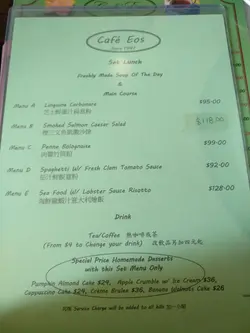 Café Eos
Since 1997
Set Lunch
Freshly Made Soup Of The Day
&
Main Course
Menu A Linguine Carbonara $95.00
芝士醃肉汁扁意粉
Menu B Smoked Salmon Caesar Salad $118.00
煙三文魚凱撒沙律
Menu C Penne Bolognese $99.00
肉醬竹筒粉
Menu D Spaghetti W/ Fresh Clam Tomato Sauce $92-00
茄汁鮮蜆意粉
Menu E Sea Food W/ Lobster Sauce Risotto $128-00
海鮮龍蝦汁意大利燴飯
Drink
Tea/Coffee 熱咖啡或茶
(From $9 to Change your drink) 改飲品另加四元起
Special Price Homemade Desserts
with this Set Menu Only
Pumpkin Almond Cake $29, Apple Crumble w/ Ice Cream $38,
Cappuccino Cake $29, Crème Brulee $30, Banana Walnuts Cake $28
Service Charge will be added to all bills 加一小賬